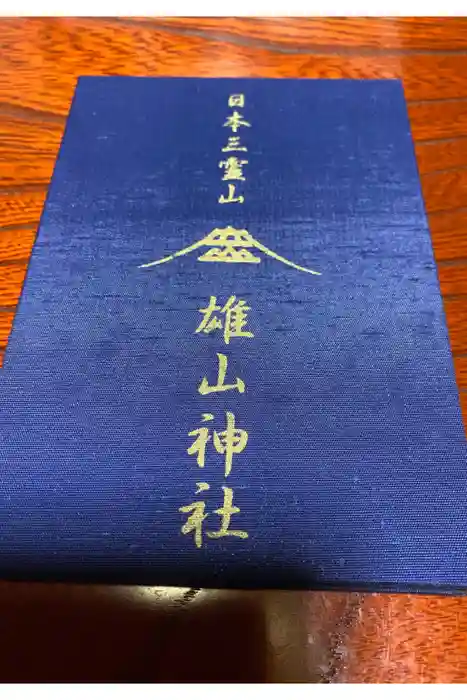 日本三霊山
雄山神社